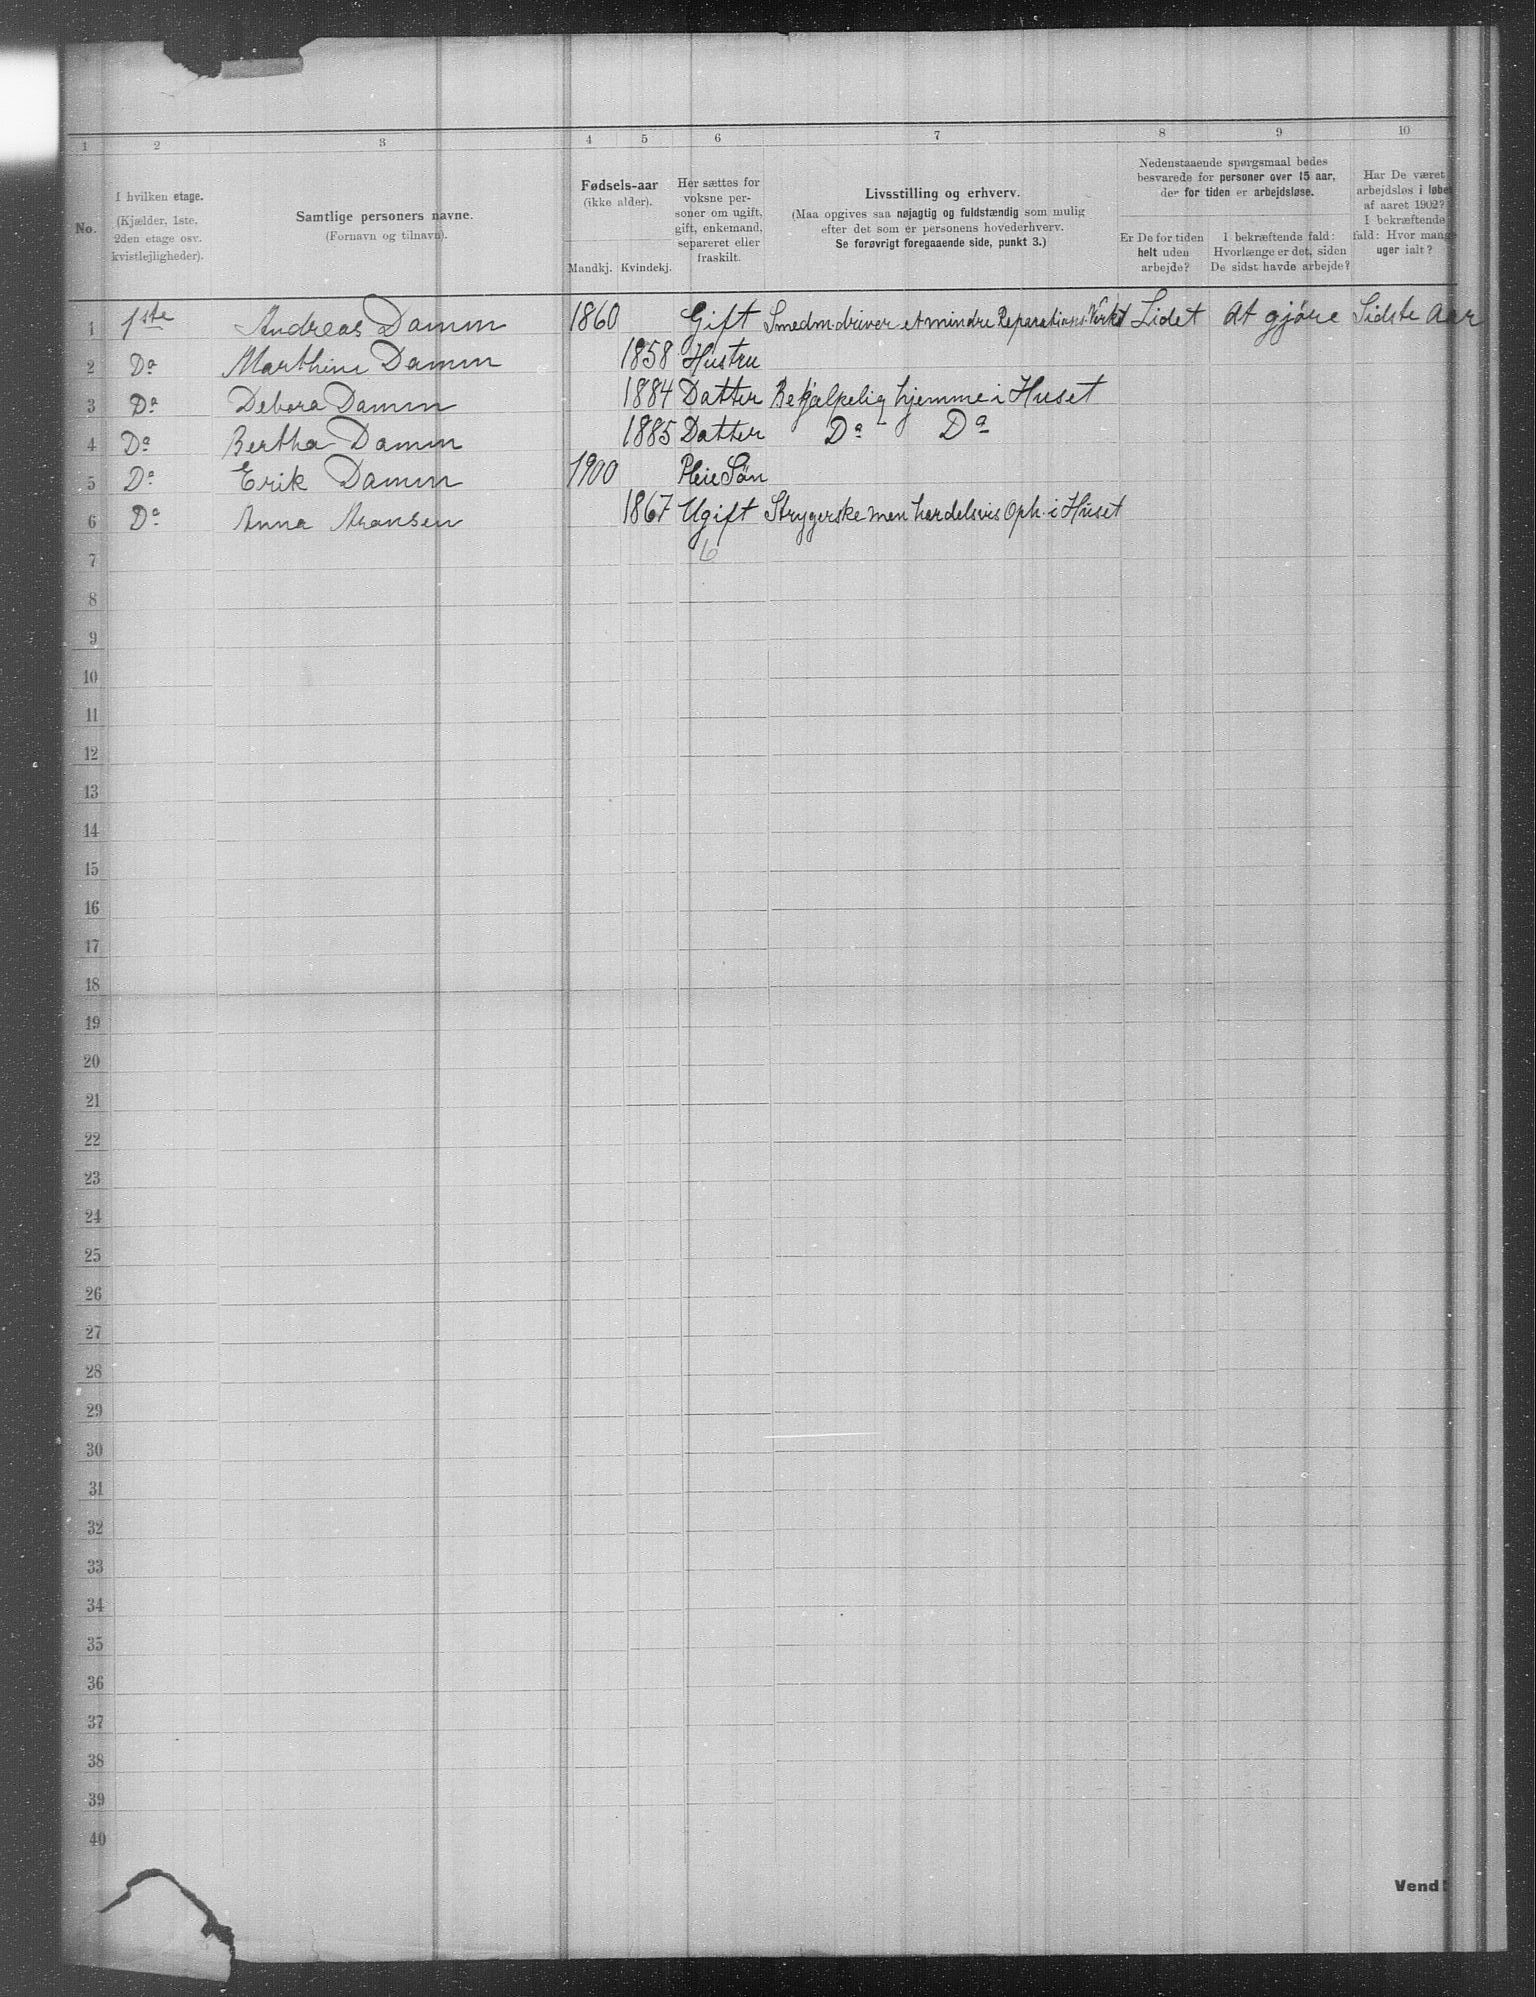 1 2 3 4 5 6 7 8 9 10
No.
I hvilken etage.
(Kjælder, 1ste,
2den etage osv.
kvistlejligheder).
Samtlige personers navne.
(Fornavn og tilnavn).
Fødsels-aar
(ikke alder).
Mandkj. Kvindekj.
Her sættes for
voksne per-
soner om ugift,
gift, enkemand,
separeret eller
fraskilt.
Livsstilling og erhverv.
(Maa opgives saa nøjagtig og fuldstændig som mulig
efter det som er personens hovederhverv.
Se forøvrigt foregaaende side, punkt 3.)
Nedenstaaende spørgsmaal bedes
besvarede for personer over 15 aar,
der for tiden er arbejdsløse.
Er De for tiden
helt uden
arbejde?
I bekræftende fald:
Hvorlænge er det, siden
De sidst havde arbejde?
Har De været
arbejdsløs i løbet
af aaret 1902?
I bekræftende
fald: Hvor mange
uger ialt?
1 1ste Andreas Damm 1860 Gift Smedm. driver et mindre Reparations-Verkst Lidet at gjöre Sidste Aar
2 Do Marthine Damm 1858 Hustru
3 Do Debora Damm 1884 Datter Behjælpelig hjemme i Huset
4 Do Bertha Damm 1885 Datter Do Do
5 Do Erik Damm 1900 Pleie Sön
6 Do Anna Aronsen 1867 Ugift Strygerske men har delsvis Oph. i Huset
6
7
8
9
10
11
12
13
14
15
16
17
18
19
20
21
22
23
24
25
26
27
28
29
30
31
32
33
34
35
36
37
38
39
40
Vend!